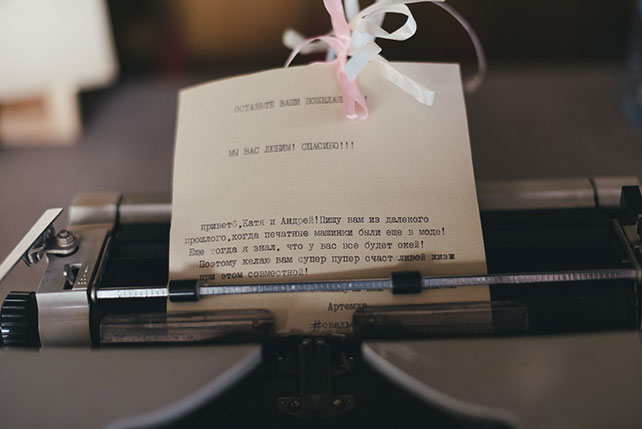 ОСТАВЬТЕ ВАШИ
МЫ ВАС ЛЮБИМ! СПАСИБО!!!
приветб,Катя и Андрей!Пишу вам из далекого
прошлого,когда печатные машинки были еще в моде!
Еще тогда я знал, что у вас все будет окей!
Поэтому желаю вам супер пупер счаст ливой жизи
при этом совместной!
Артемка